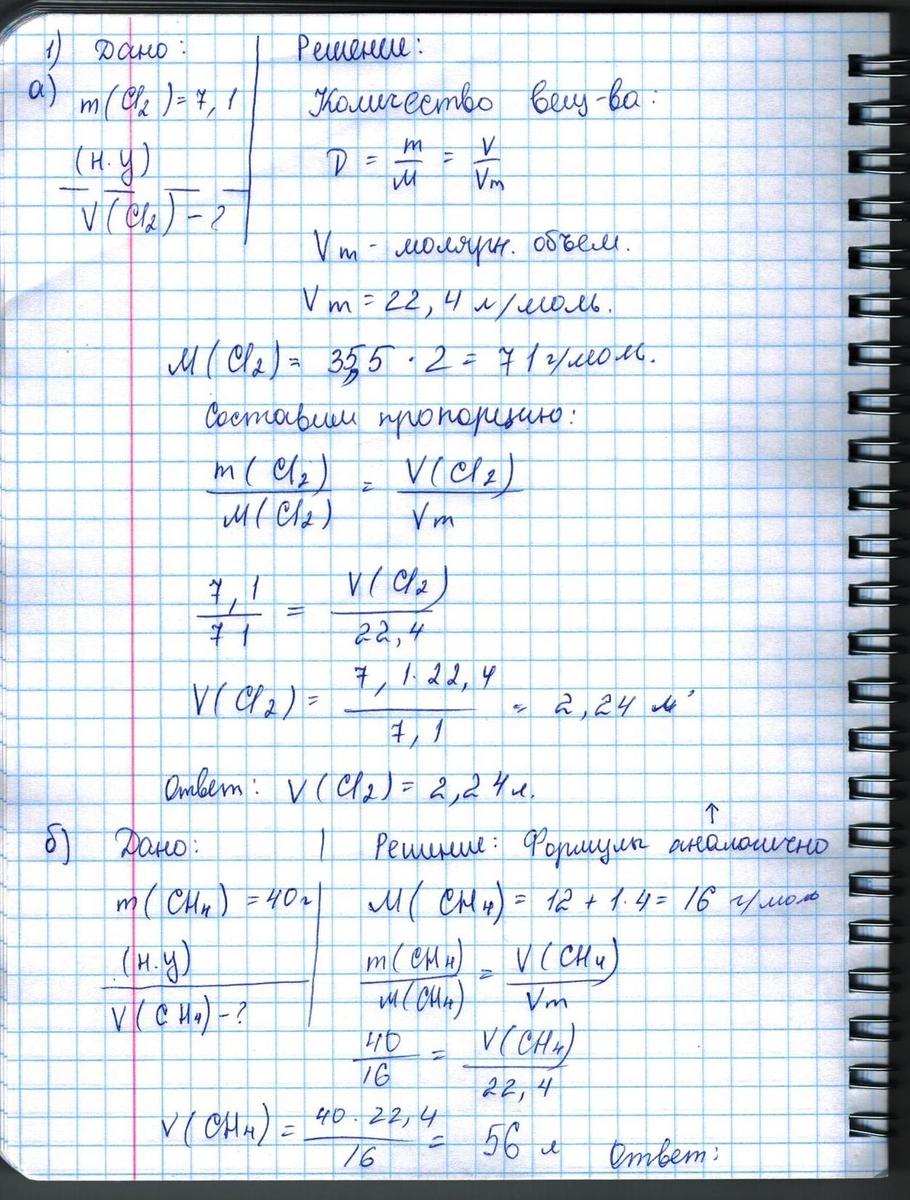 1) Дано: Решение:
а) m(Cl2)=7,1 Количество вещ-ва:
(н.у) D = m/M = V/Vm
V(Cl2)-?
Vm - молярн. объем.
Vm = 22,4 л/моль.
M(Cl2)= 35,5 · 2 = 71 г/моль.
Составим пропорцию:
m(Cl2)/M(Cl2) = V(Cl2)/Vm
7,1/71 = V(Cl2)/22,4
V(Cl2)= 7,1·22,4/7,1 = 2,24 л
Ответ: V(Cl2)=2,24л.
↑
б) Дано: Решение: Формулы аналогично
m(CH4)=40г M(CH4)= 12+1·4=16 г/моль
(н.у) m(CH4)/M(CH4) = V(CH4)/Vm
V(CH4)-?
40/16 = V(CH4)/22,4
V(CH4)= 40·22,4/16 = 56 л Ответ: